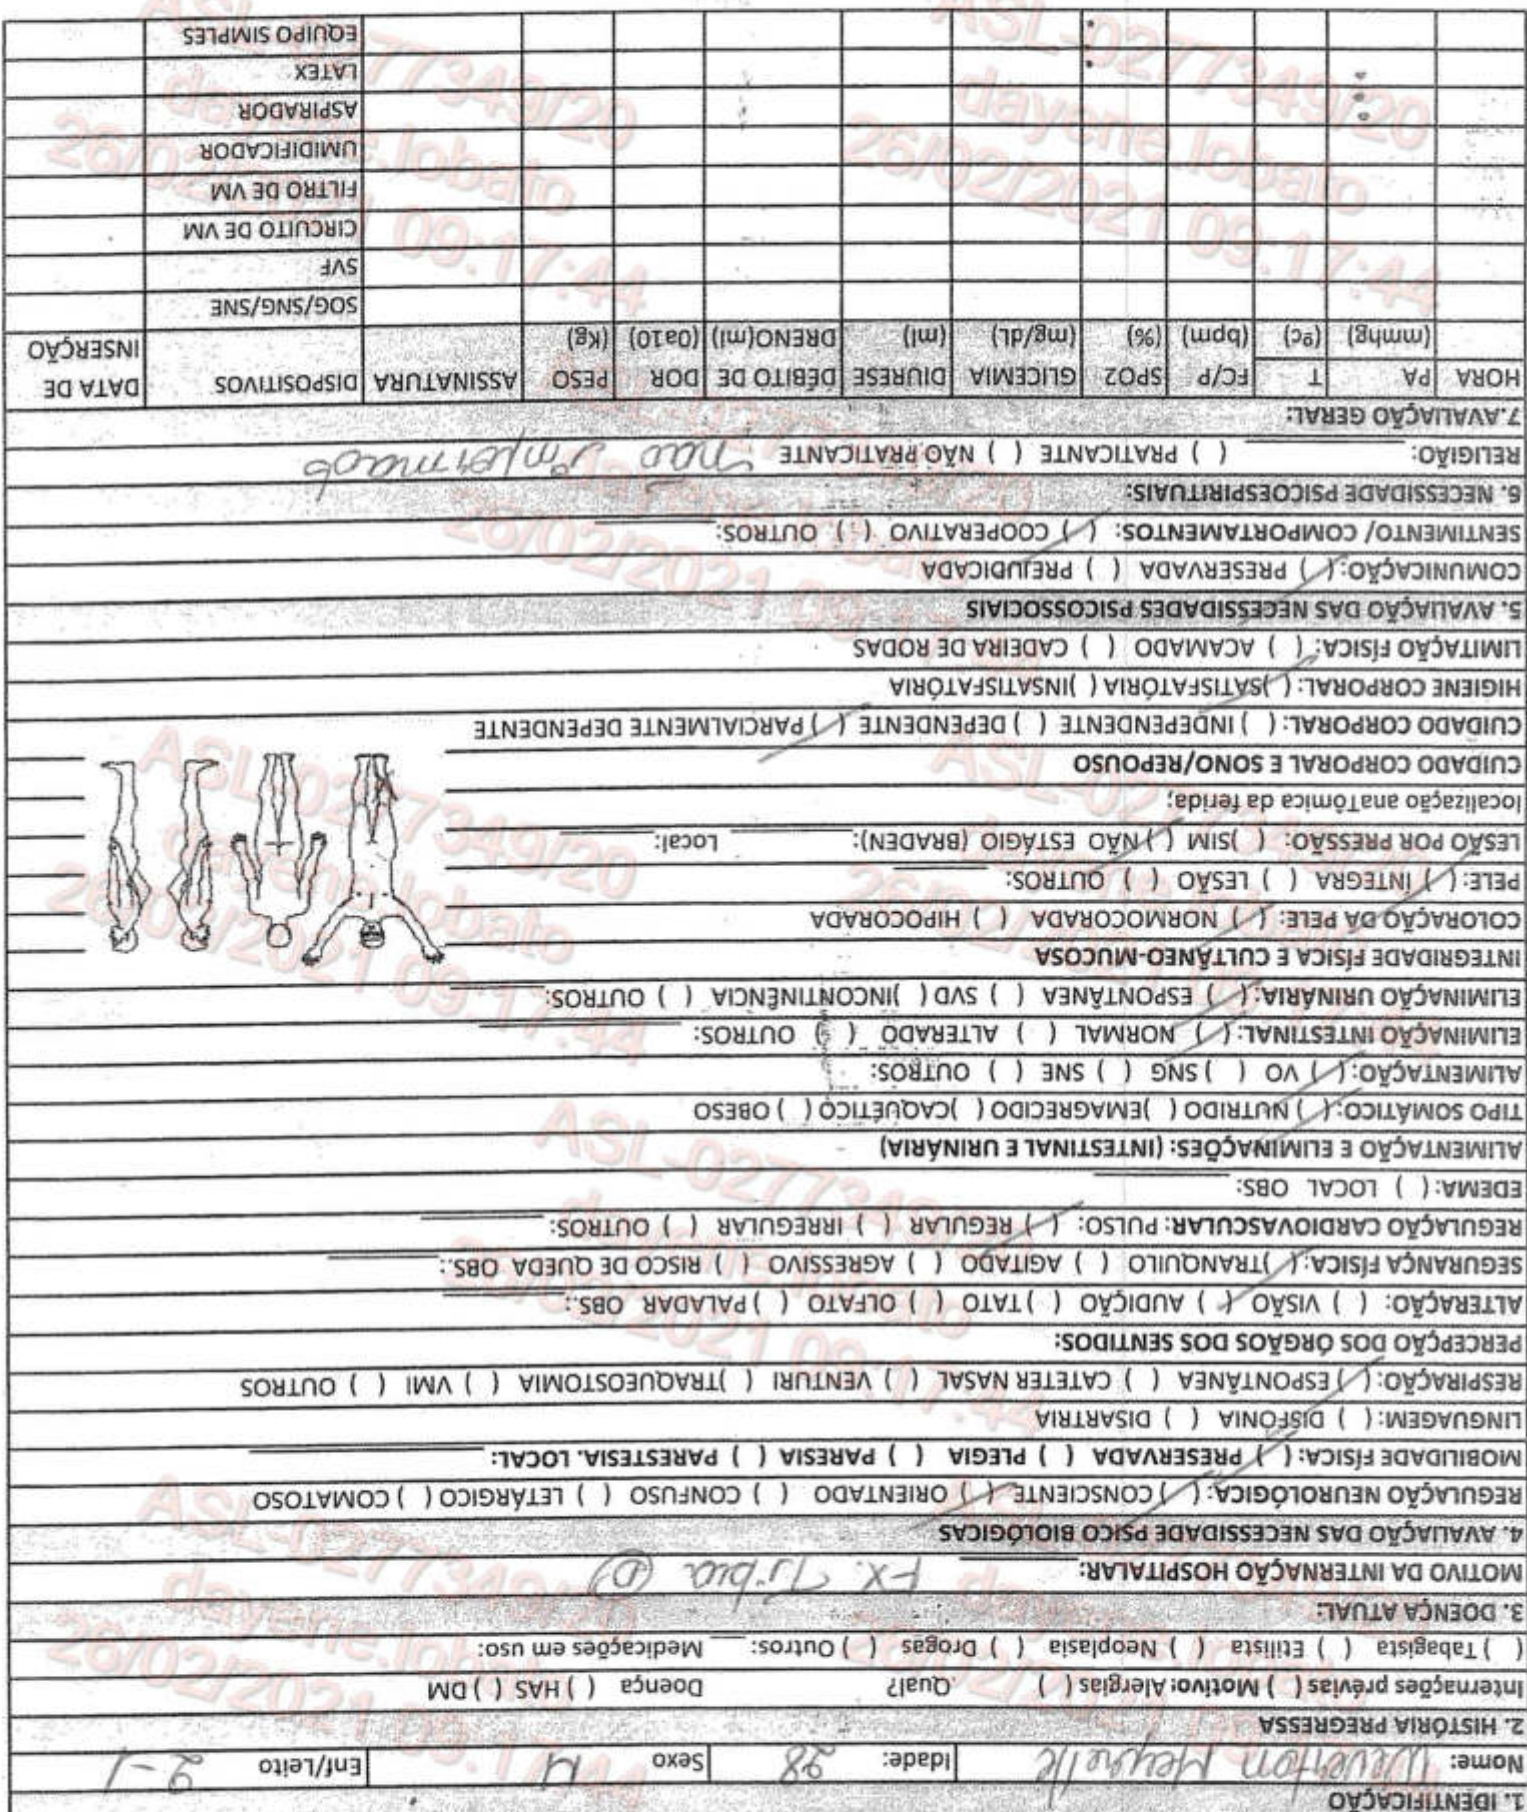 1. IDENTIFICAÇÃO
Nome: Idade: 28 Sexo M Enf/Leito 2-1
2. HISTÓRIA PREGRESSA
Internações prévias ( ) Motivo: Alergias ( ) Qual? Doença ( ) HAS ( ) DM
( ) Tabagista ( ) Etilista ( ) Neoplasia ( ) Drogas ( ) Outros: Medicações em uso:
3. DOENÇA ATUAL:
MOTIVO DA INTERNAÇÃO HOSPITALAR: FX. Tíbia (D)
4. AVALIAÇÃO DAS NECESSIDADE PSICO BIOLÓGICAS
REGULAÇÃO NEUROLÓGICA: ( ) CONSCIENTE ( ) ORIENTADO ( ) CONFUSO ( ) LETÁRGICO ( ) COMATOSO
MOBILIDADE FÍSICA: ( ) PRESERVADA ( ) PLEGIA ( ) PARESIA ( ) PARESTESIA. LOCAL:
LINGUAGEM: ( ) DISFONIA ( ) DISARTRIA
RESPIRAÇÃO: ( ) ESPONTÂNEA ( ) CATETER NASAL ( ) VENTURI ( )TRAQUEOSTOMIA ( ) VMI ( ) OUTROS
PERCEPÇÃO DOS ÓRGÃOS DOS SENTIDOS:
ALTERAÇÃO: ( ) VISÃO ( ) AUDIÇÃO ( )TATO ( ) OLFATO ( ) PALADAR OBS.:
SEGURANÇA FÍSICA: ( )TRANQUILO ( ) AGITADO ( ) AGRESSIVO ( ) RISCO DE QUEDA OBS.:
REGULAÇÃO CARDIOVASCULAR: PULSO: ( ) REGULAR ( ) IRREGULAR ( ) OUTROS:
EDEMA: ( ) LOCAL OBS:
ALIMENTAÇÃO E ELIMINAÇÕES: (INTESTINAL E URINÁRIA)
TIPO SOMÁTICO: ( ) NUTRIDO ( )EMAGRECIDO ( )CAQUÉTICO ( ) OBESO
ALIMENTAÇÃO: ( ) VO ( ) SNG ( ) SNE ( ) OUTROS:
ELIMINAÇÃO INTESTINAL: ( ) NORMAL ( ) ALTERADO ( ) OUTROS:
ELIMINAÇÃO URINÁRIA: ( ) ESPONTÂNEA ( ) SVD ( )INCONTINÊNCIA ( ) OUTROS:
INTEGRIDADE FÍSICA E CULTÂNEO-MUCOSA
COLORAÇÃO DA PELE: ( ) NORMOCORADA ( ) HIPOCORADA
PELE: ( ) ÍNTEGRA ( ) LESÃO ( ) OUTROS:
LESÃO POR PRESSÃO: ( )SIM ( )NÃO ESTÁGIO (BRADEN): Local:
localização anaTômica da ferida;
CUIDADO CORPORAL E SONO/REPOUSO
CUIDADO CORPORAL: ( ) INDEPENDENTE ( ) DEPENDENTE ( ) PARCIALMENTE DEPENDENTE
HIGIENE CORPORAL: ( )SATISFATÓRIA ( )INSATISFATÓRIA
LIMITAÇÃO FÍSICA: ( ) ACAMADO ( ) CADEIRA DE RODAS
5. AVALIAÇÃO DAS NECESSIDADES PSICOSSOCIAIS
COMUNICAÇÃO: ( ) PRESERVADA ( ) PREJUDICADA
SENTIMENTO/ COMPORTAMENTOS: ( ) COOPERATIVO ( ) OUTROS:
6. NECESSIDADE PSICOESPIRITUAIS:
RELIGIÃO: ( ) PRATICANTE ( ) NÃO PRATICANTE não informado
7.AVALIAÇÃO GERAL:
HORA PA (mmhg) T (ºc) FC/P (bpm) SPO2 (%) GLICEMIA (mg/dL) DIURESE (ml) DÉBITO DE DRENO(ml) DOR (0a10) PESO (Kg) ASSINATURA DISPOSITIVOS DATA DE INSERÇÃO
SOG/SNG/SNE
SVF
CIRCUITO DE VM
FILTRO DE VM
UMIDIFICADOR
ASPIRADOR
LATEX
EQUIPO SIMPLES
ASL-0277349/20
dayene.lobato
26/02/2021 09:17:44